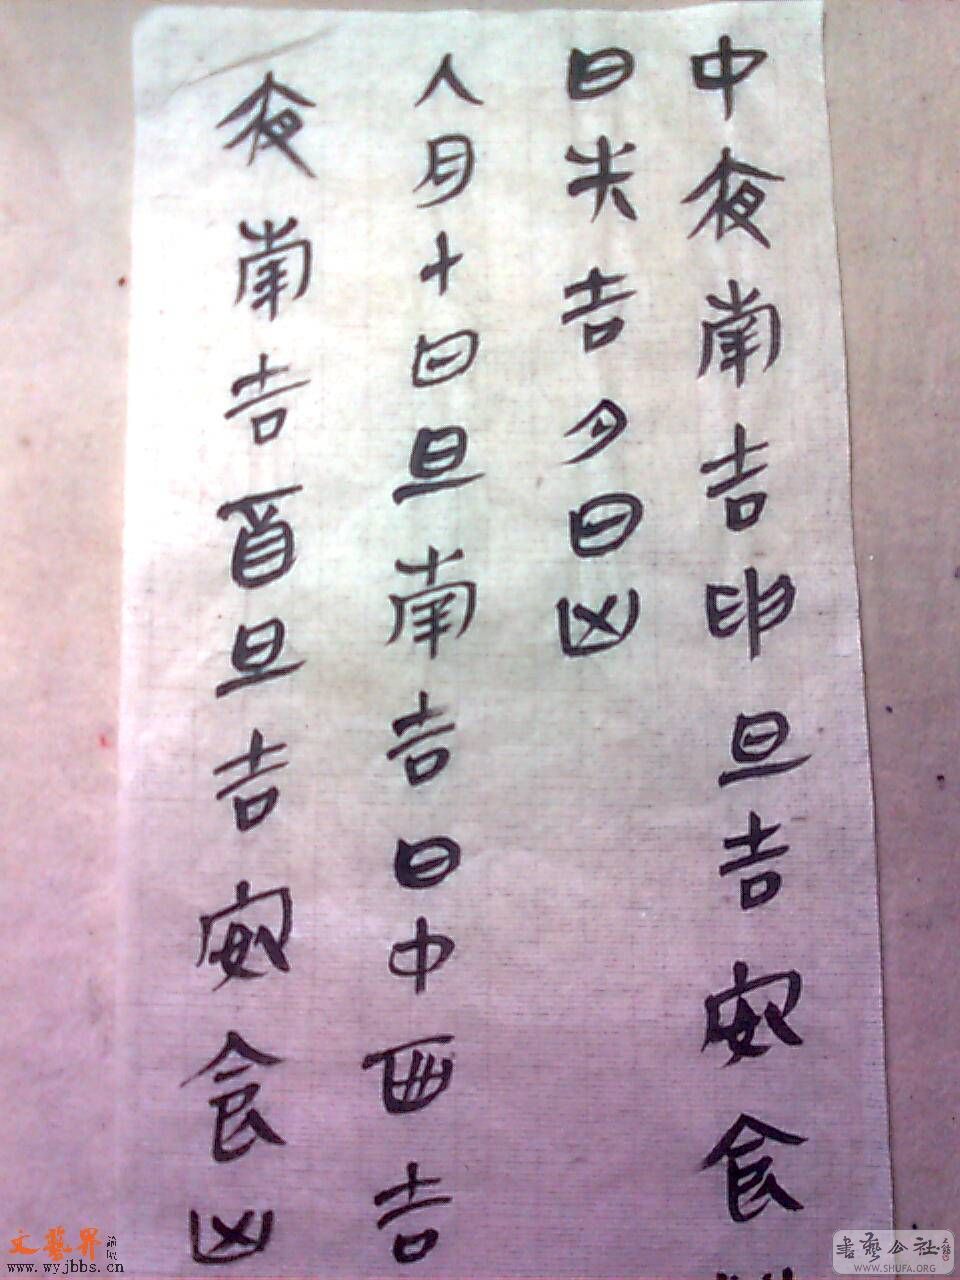 中夜南吉旦吉安食
日失吉夕日凶
入月十日旦南吉日中西吉
夜南吉旦吉安食凶
文艺界论坛
www.wyjbbs.cn
书艺公社
WWW.SHUFA.ORG